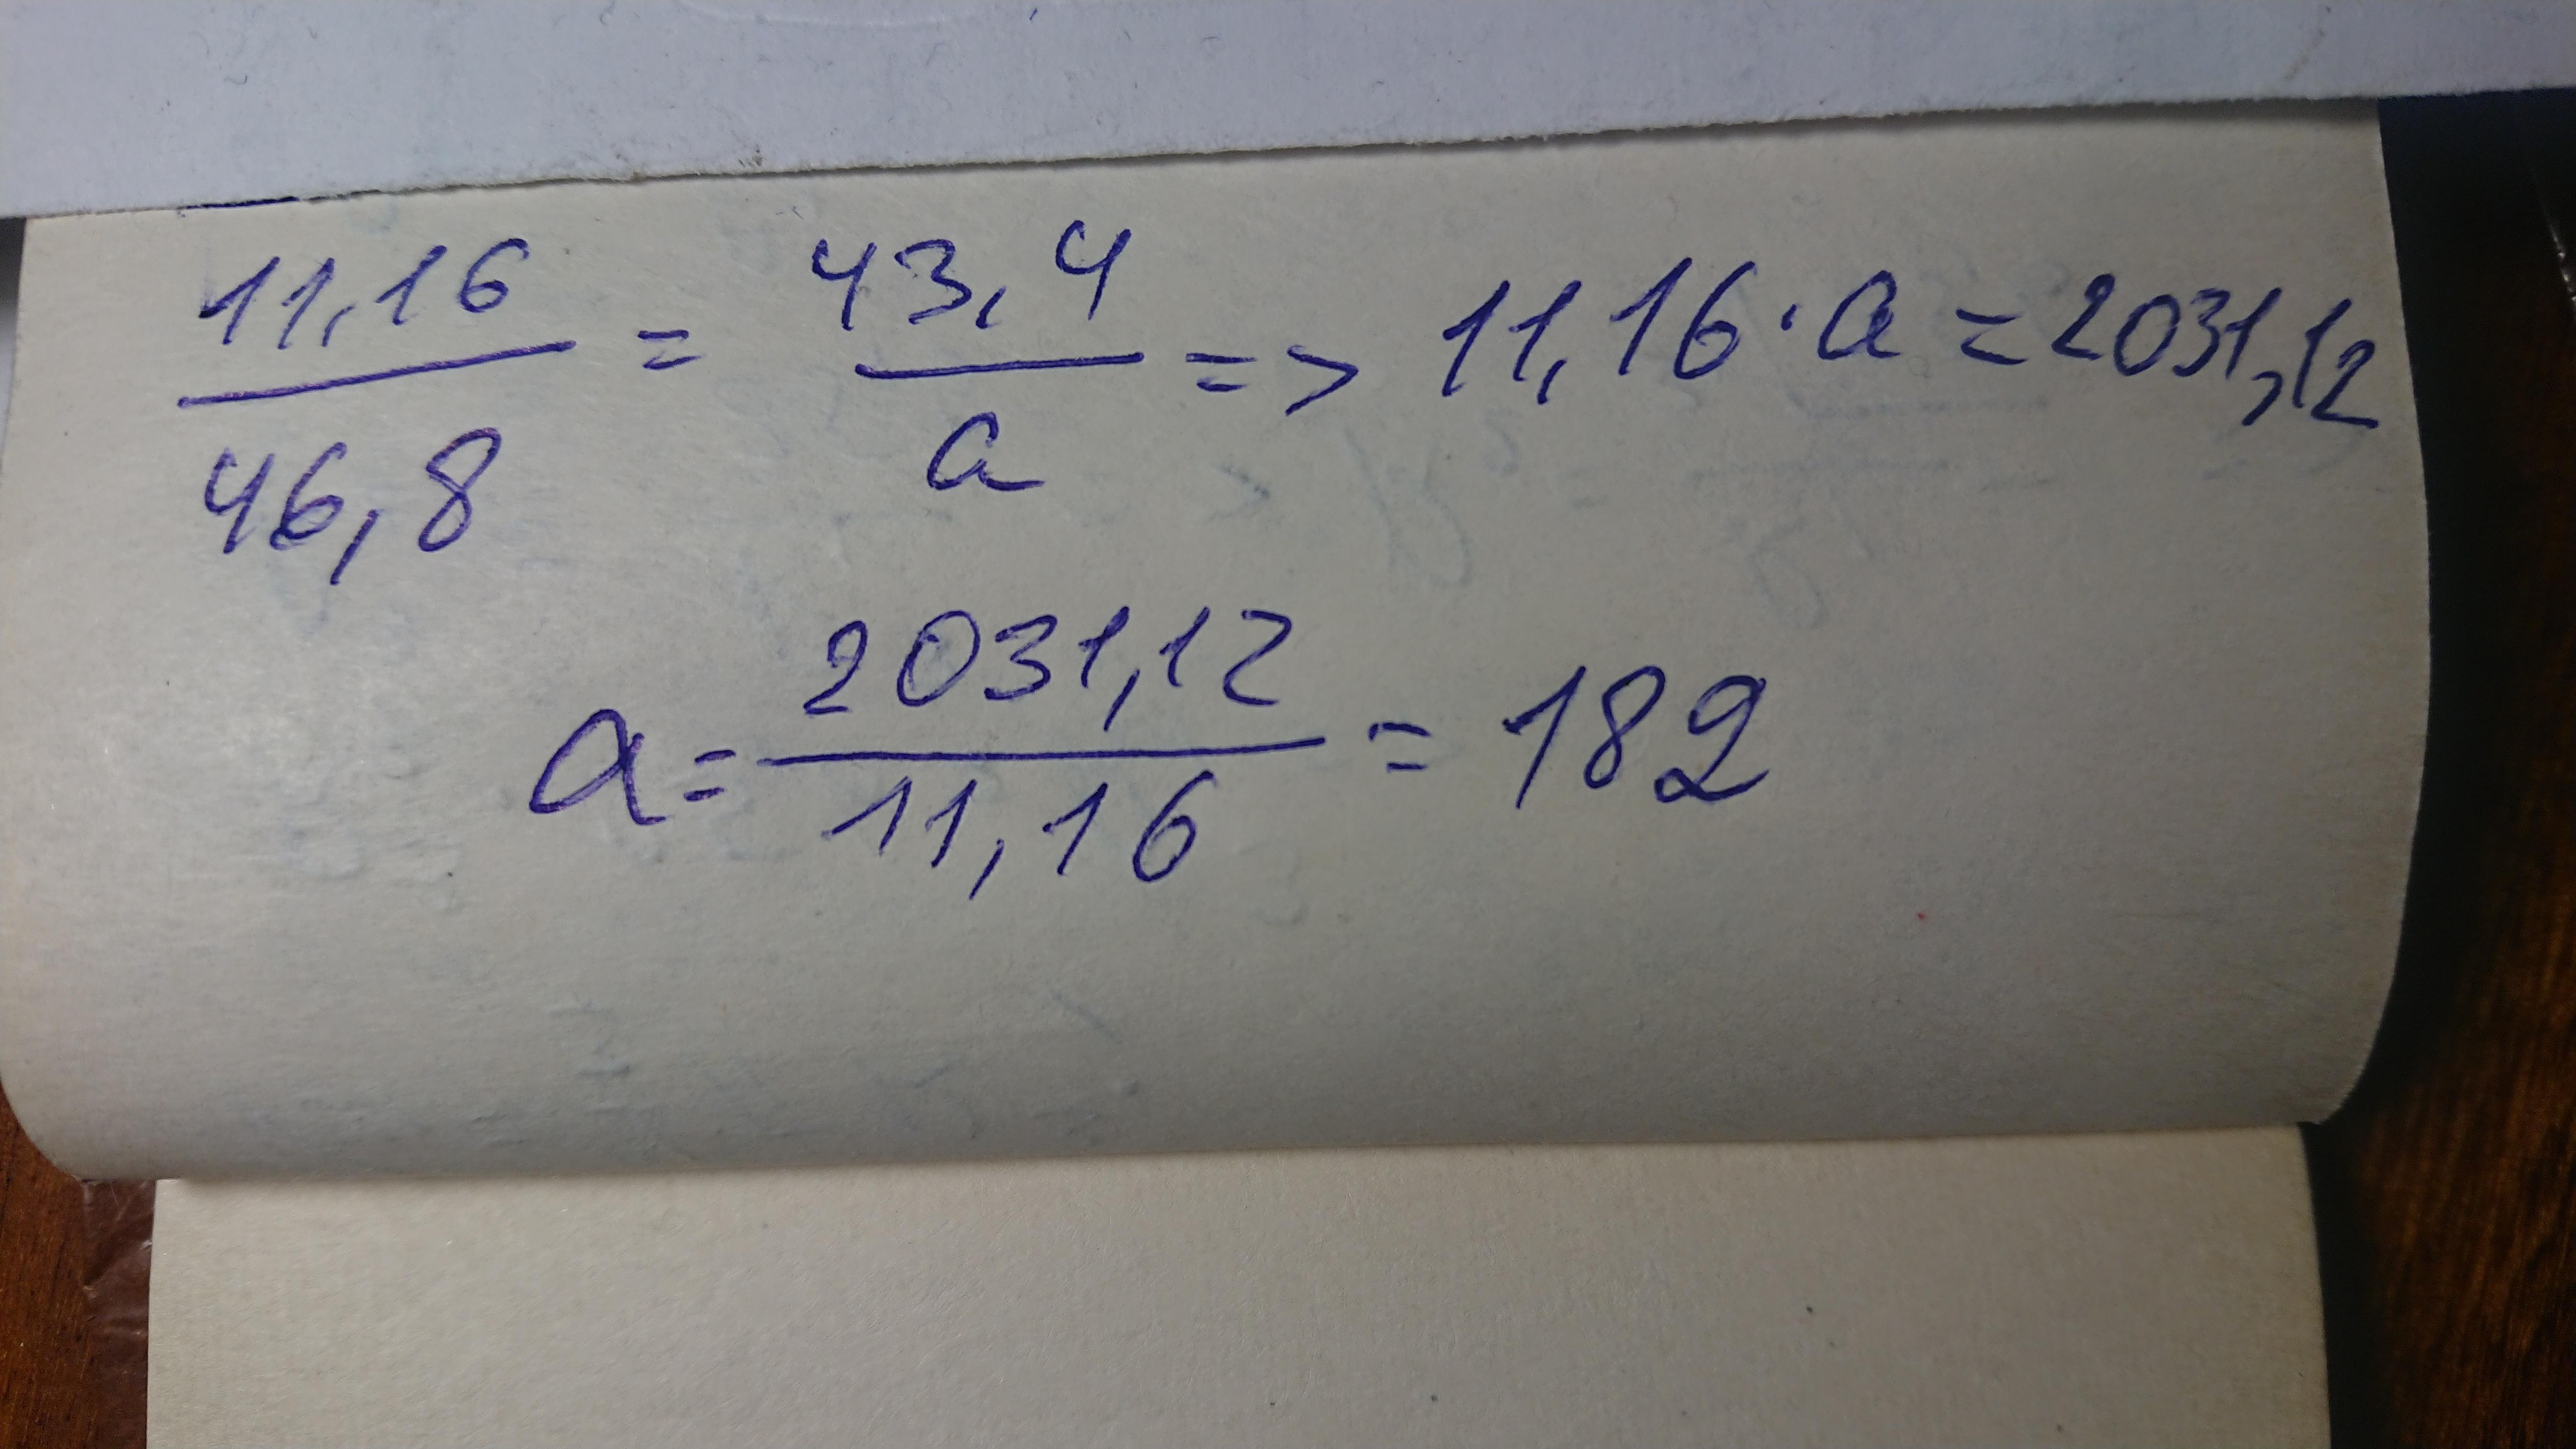 11,16/46,8 = 43,4/a => 11,16·a = 2031,12
a = 2031,12/11,16 = 182